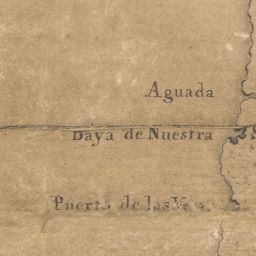 Aguada
Baya de Nuestra S
Puerto de las